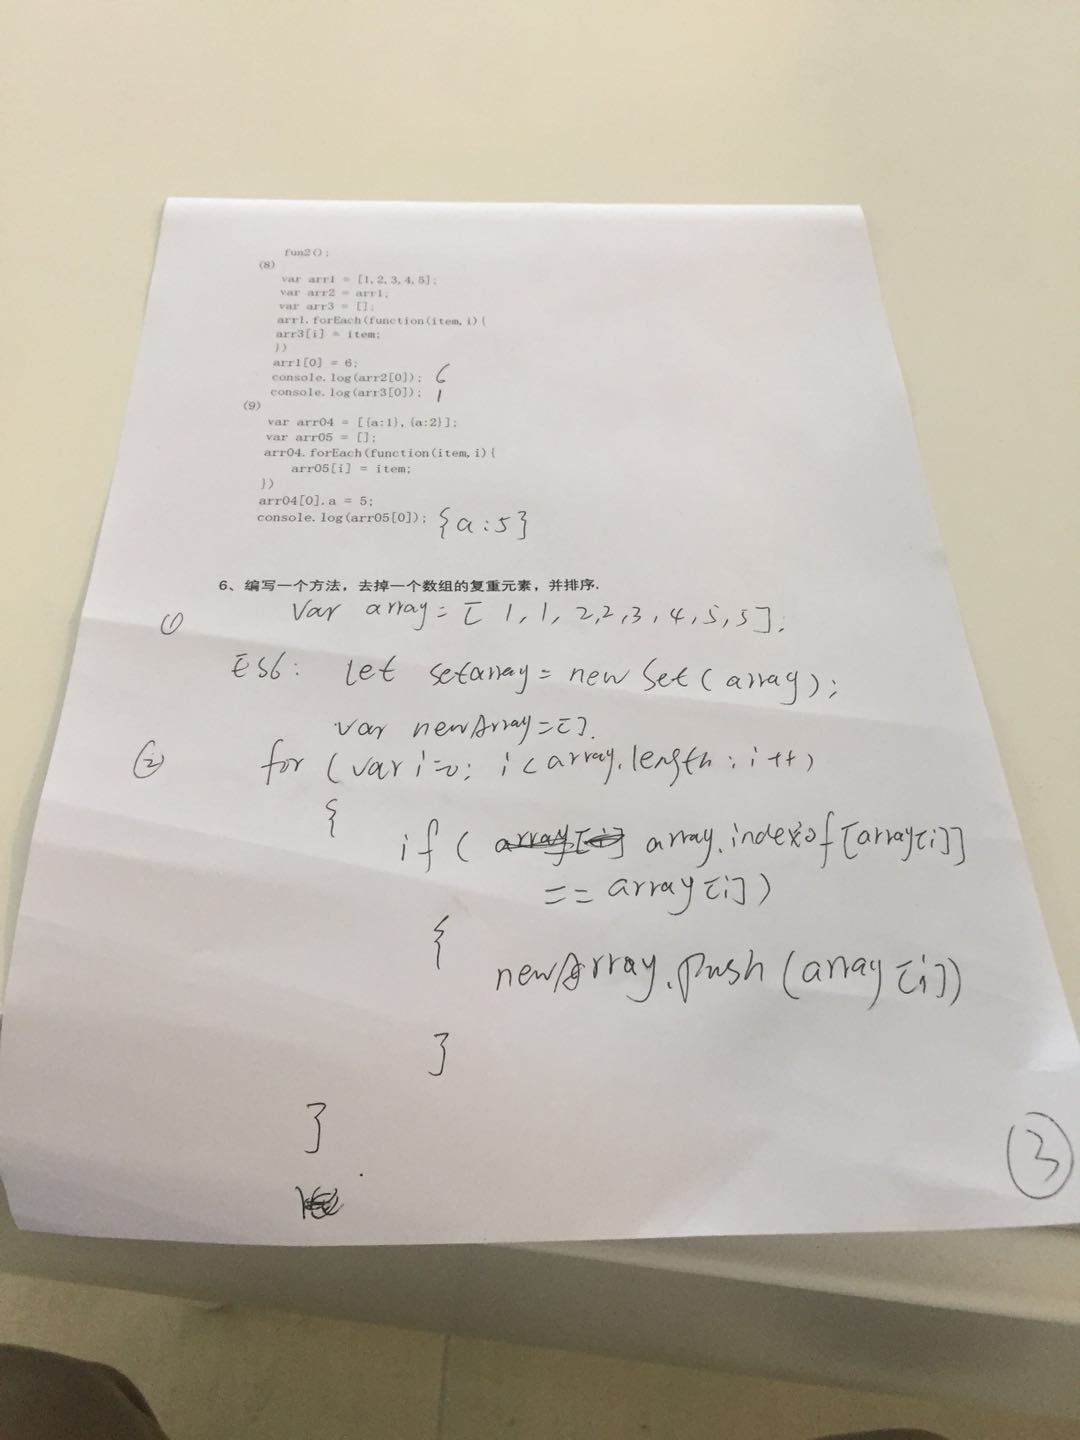 fun2();
(8)
var arr1 = [1,2,3,4,5];
var arr2 = arr1;
var arr3 = [];
arr1.forEach(function(item,i){
arr3[i] = item;
})
arr1[0] = 6;
console.log(arr2[0]); 6
console.log(arr3[0]); 1
(9)
var arr04 = [{a:1},{a:2}];
var arr05 = [];
arr04.forEach(function(item,i){
arr05[i] = item;
})
arr04[0].a = 5;
console.log(arr05[0]); {a:5}
6、编写一个方法，去掉一个数组的复重元素，并排序.
① var array = [1,1,2,2,3,4,5,5];
ES6: let setarray = new Set(array);
var newArray=[].
② for (var i=0; i<array.length; i++)
{
if ( array.indexof[array[i]]
== array[i])
{
newArray.push(array[i])
}
}
③